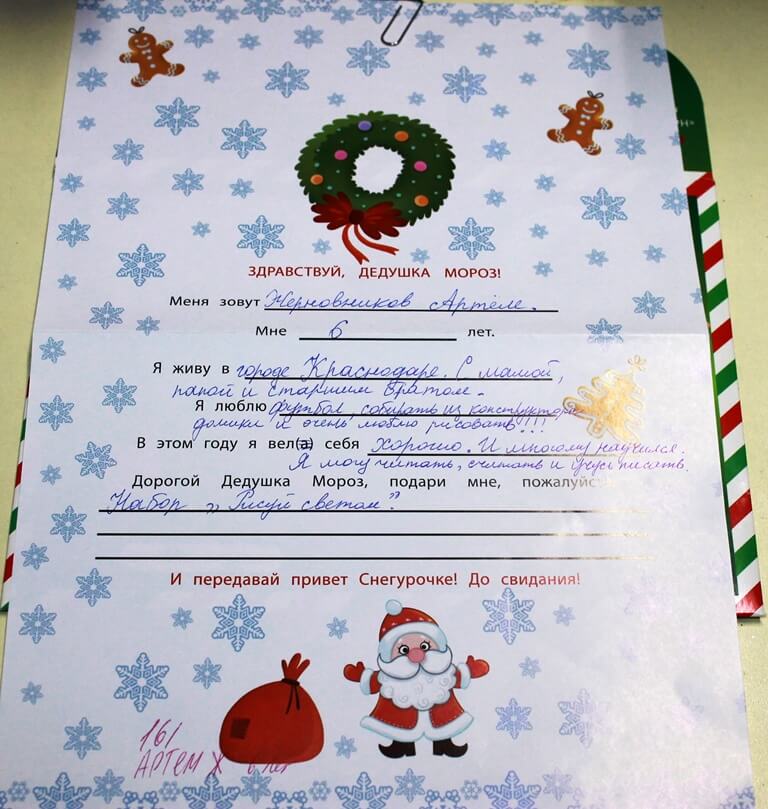 ЗДРАВСТВУЙ, ДЕДУШКА МОРОЗ!
Меня зовут Жерновников Артём.
Мне 6 лет.
Я живу в городе Краснодаре. С мамой,
папой и старшим братом.
Я люблю футбол, собирать из конструктора
домики и очень люблю рисовать!!!!
В этом году я вел(а) себя хорошо. И многому научился.
Я могу читать, считать и учусь писать.
Дорогой Дедушка Мороз, подари мне, пожалуйста,
Набор „Рисуй светом".
И передавай привет Снегурочке! До свидания!
16/
АРТЁМ Ж 6 лет